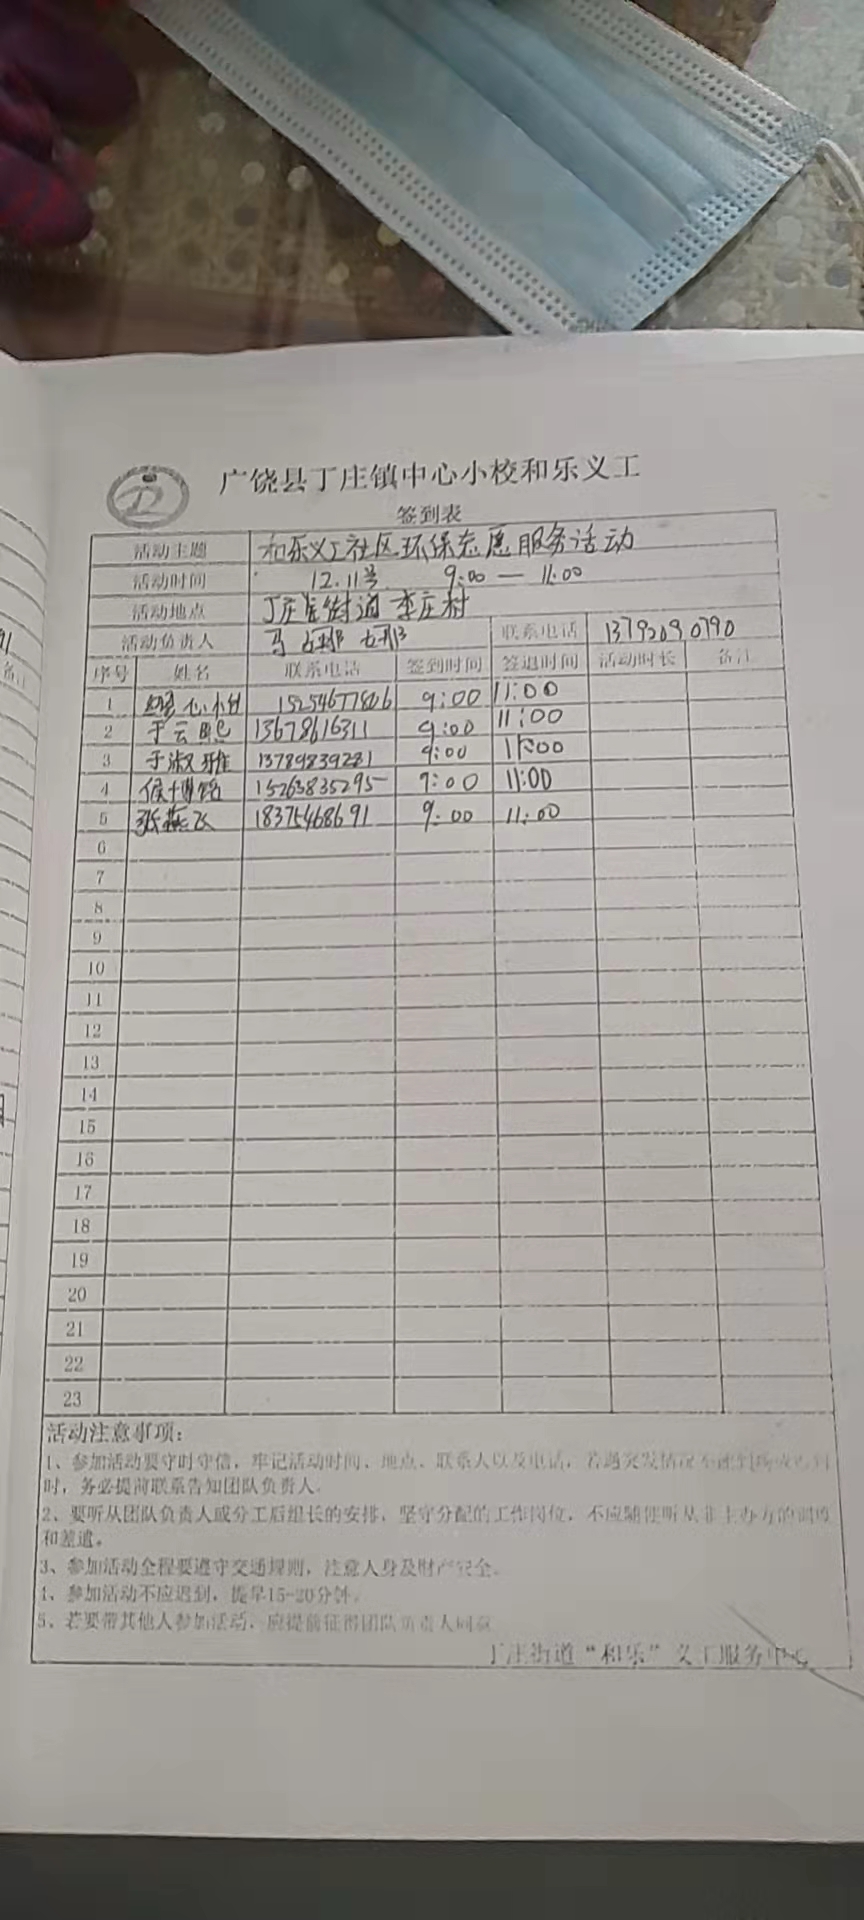 广饶县丁庄镇中心小校和乐义工
签到表
活动主题 和乐义工社区环保志愿服务活动
活动时间 12.11号 9:00 — 11:00
活动地点 丁庄街道 李庄村
活动负责人 马娜娜 联系电话 13792090790
序号 姓名 联系电话 签到时间 签退时间 活动时长 备注
1 15254677806 9:00 11:00
2 于云 13678616311 9:00 11:00
3 于淑雅 13789839281 9:00 11:00
4 侯博铭 15263835295 9:00 11:00
5 张燕飞 18375468691 9:00 11:00
6
7
8
9
10
11
12
13
14
15
16
17
18
19
20
21
22
23
活动注意事项：
1、参加活动要守时守信，牢记活动时间、地点、联系人以及电话，若遇突发情况不能
时，务必提前联系告知团队负责人。
2、要听从团队负责人或分工后组长的安排，坚守分配的工作岗位，不应随便听从非主办方的调度
和差遣。
3、参加活动全程要遵守交通规则，注意人身及财产安全。
4、参加活动不应迟到，提早15-20分钟。
5、若要带其他人参加活动，应提前征得团队负责人同意
丁庄街道“和乐”义工服务中心